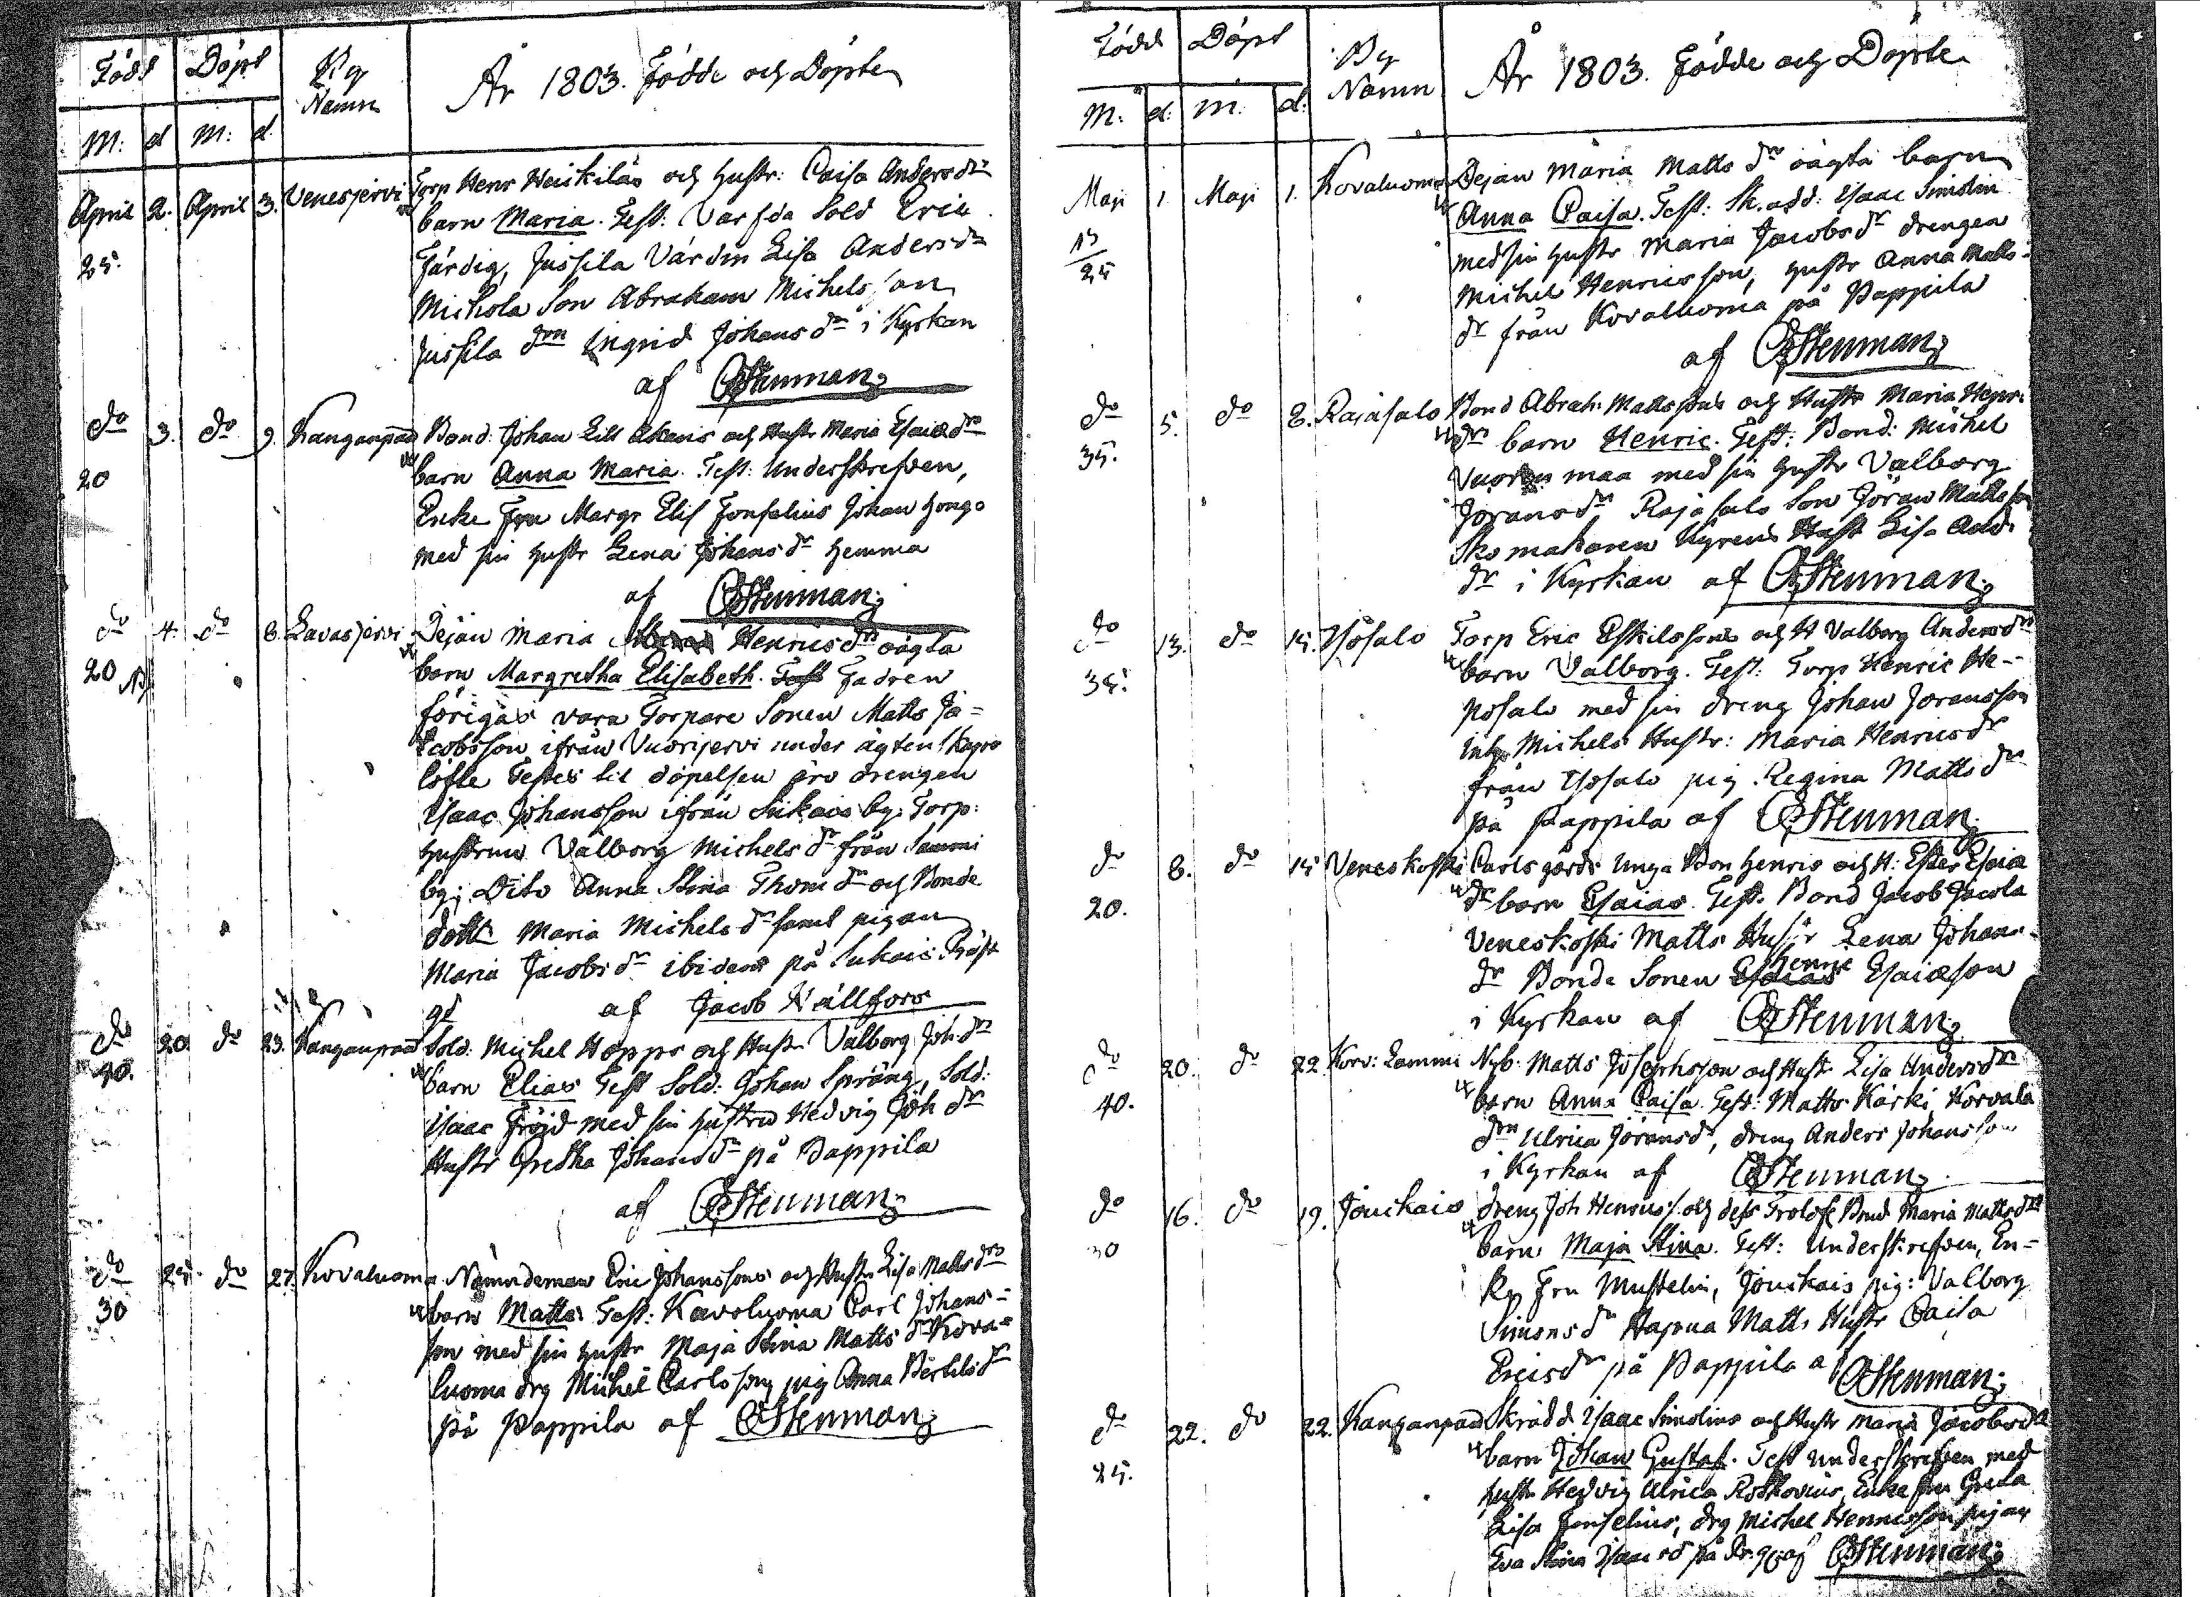 Född Döpt By Namn År 1803. Födde och Döpte
M: d M: d.
April 2. April 3. Venesjervi Torp Henr Heickiläs och hustr: Caisa Andersdr
25. barn Maria. Test: Varfda Sold Eric
Färdig, Jussila Värdin Lisa Andersdr
Michola Son Abraham Michelsson
Jussila drn Ingrid Johansdr i Kyrkan
af CGStenman
do 3. do 9. Kanganpää Bond: Johan Lill Akavis och Hustr Maria Esaiædr
20 barn Anna Maria. Test: Underskrefven,
Encke Fru Margr Elis Fonselius Johan Hongo
med sin hustr Lena Johansdr hemma
af CGStenman
do 4. do 8. Lavasjervi Dejan Maria Henricsdr oägta
20 barn Margretha Elisabeth. Test Fadren
föregås vara Torpare Sonen Matts Ja=
cobsson ifrån Vuorijervi under ägtenskaps
löfte Testes til döpelsen äro drengen
Isaac Johansson ifrån Suikais by: Torp:
hustrun Valborg Michelsdr från Sammi
by; Dito Anna Stina Thomdr och Bonde
dottr Maria Michelsdr samt pigan
Maria Jacobsdr ibidem på Suikais Präst
gd af Jacob Källfors
do 20. do 23. Kanganpää Sold: Michel Hopps och Hustr Valborg Johdr
40. barn Elias Test Sold: Johan Spräng, Sold:
Isaac Fröjd med sin hustru Hedvig Johdr
Hustr Gretha Johansdr på Pappila
af CGStenman
do 25. do 27. Kovaluoma Nämndeman Eric Johanssons och Hustr Lisa Mattsdr
30 barn Matts. Test: Kavoluoma Carl Johans=
son med sin hustr Maja Stina Mattsdr Kova=
luoma drg Michel Carlsson, pig Anna Bertilsdr
på Pappila af CGStenman
Född Döpt By Namn År 1803. Födde och Döpte
M: d: M: d:
Maji 1. Maji 1. Kovaluoma Dejan Maria Mattsdr oägta barn
13/25 Anna Caisa. Test: Sk.add: Isaac Simolin
med sin hustr Maria Jacobsdr drengen
Michel Henricsson, hustr Anna Matts=
dr från Kovalluoma på Pappila
af CGStenman
do 5. do 8. Rajasalo Bond Abrah. Mattssons och Hustr Maria Henr:
35. dr barn Henric. Test: Bond: Michel
maa med sin hustr Valborg
Joransdr, Rajasalo Son Jöran Mattsson
Skomakaren Kyrens Hustr Lisa And:
dr i Kyrkan af CGStenman
do 13. do 15. Ysösalo Torp Eric Eskilssons och H Valborg Andersdr
35. barn Valborg. Test: Torp Henric He=
posalo med sin dreng Johan Joransson
inh. Michels Hustr: Maria Henricsdr
från Ysösalo pig Regina Mattsdr
på Pappila af CGStenman
do 8. do 15 Veneskoski Carlsgårds Unga Bon Henric och H: Ester Esaiæ
20. dr barn Esaias. Test. Bond Jacob Jacola
Veneskoski Matts Hustr Lena Johans=
dr Bonde Sonen Henric Esaiæson
i Kyrkan af CGStenman
do 20. do 22. Korv: Lammi Nyb. Matts Josephsson och Hustr Lisa Andersdr
40. barn Anna Caisa. Test: Matts Kärki, Korvala
drn Ulrica Joransdr, dreng Anders Johansson
i Kyrkan af CGStenman
do 16. do 19. Jouckais dreng Joh Henricss. och dess Trolof: Brud Maria Mattsdr
30 barn Maja Stina. Test: Underskrefven, En=
ke Fru Mustelin, Jouckais pig: Valborg
Simonsdr Hapua Matts Hustr Caisa
Ericsdr på Pappila af CGStenman
do 22. do 22. Kanganpää Skrädd Isaac Simolins och Hustr Maria Jacobsdr
25. barn Johan Gustaf. Test underskrefven med
hustr Hedvig Ulrica Roskovius, Enke fru Greta
Lisa Fonselius, drg Michel Henricsson pigan
Eva Stina Isaacsd på Pr.gd af CGStenman